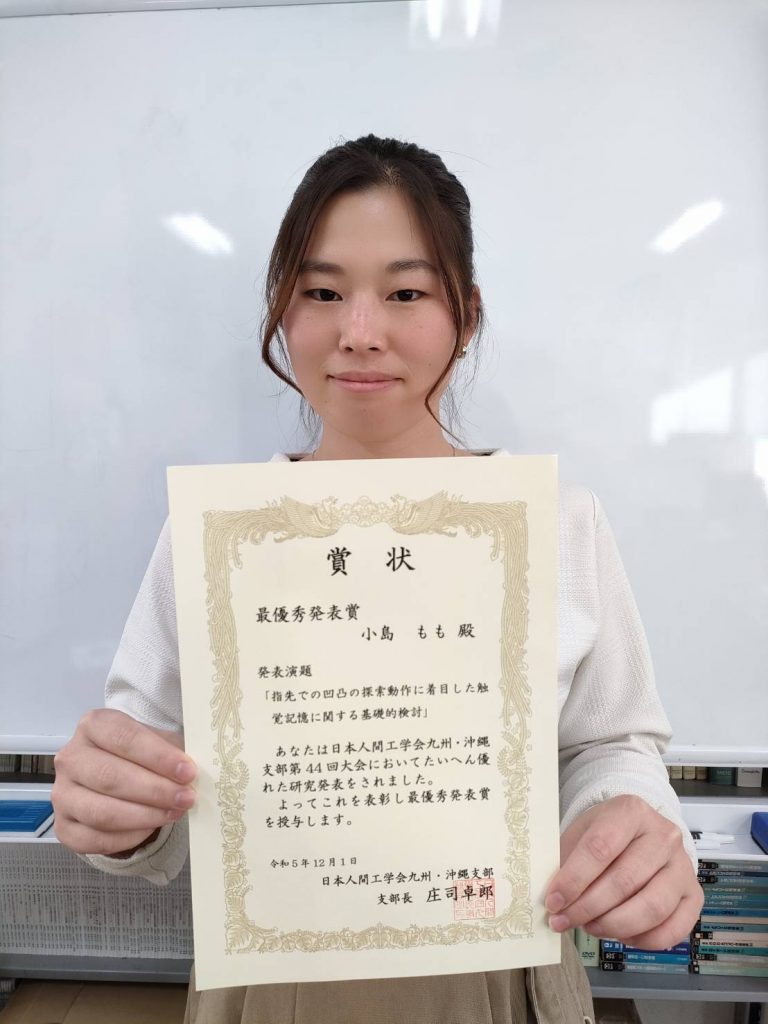 賞 状
最優秀発表賞
小島 もも 殿
発表演題
「指先での凹凸の探索動作に着目した触
覚記憶に関する基礎的検討」
あなたは日本人間工学会九州・沖縄
支部第44回大会においてたいへん優
れた研究発表をされました。
よってこれを表彰し最優秀発表賞
を授与します。
令和5年12月1日
日本人間工学会九州・沖縄支部
支部長 庄司卓郎